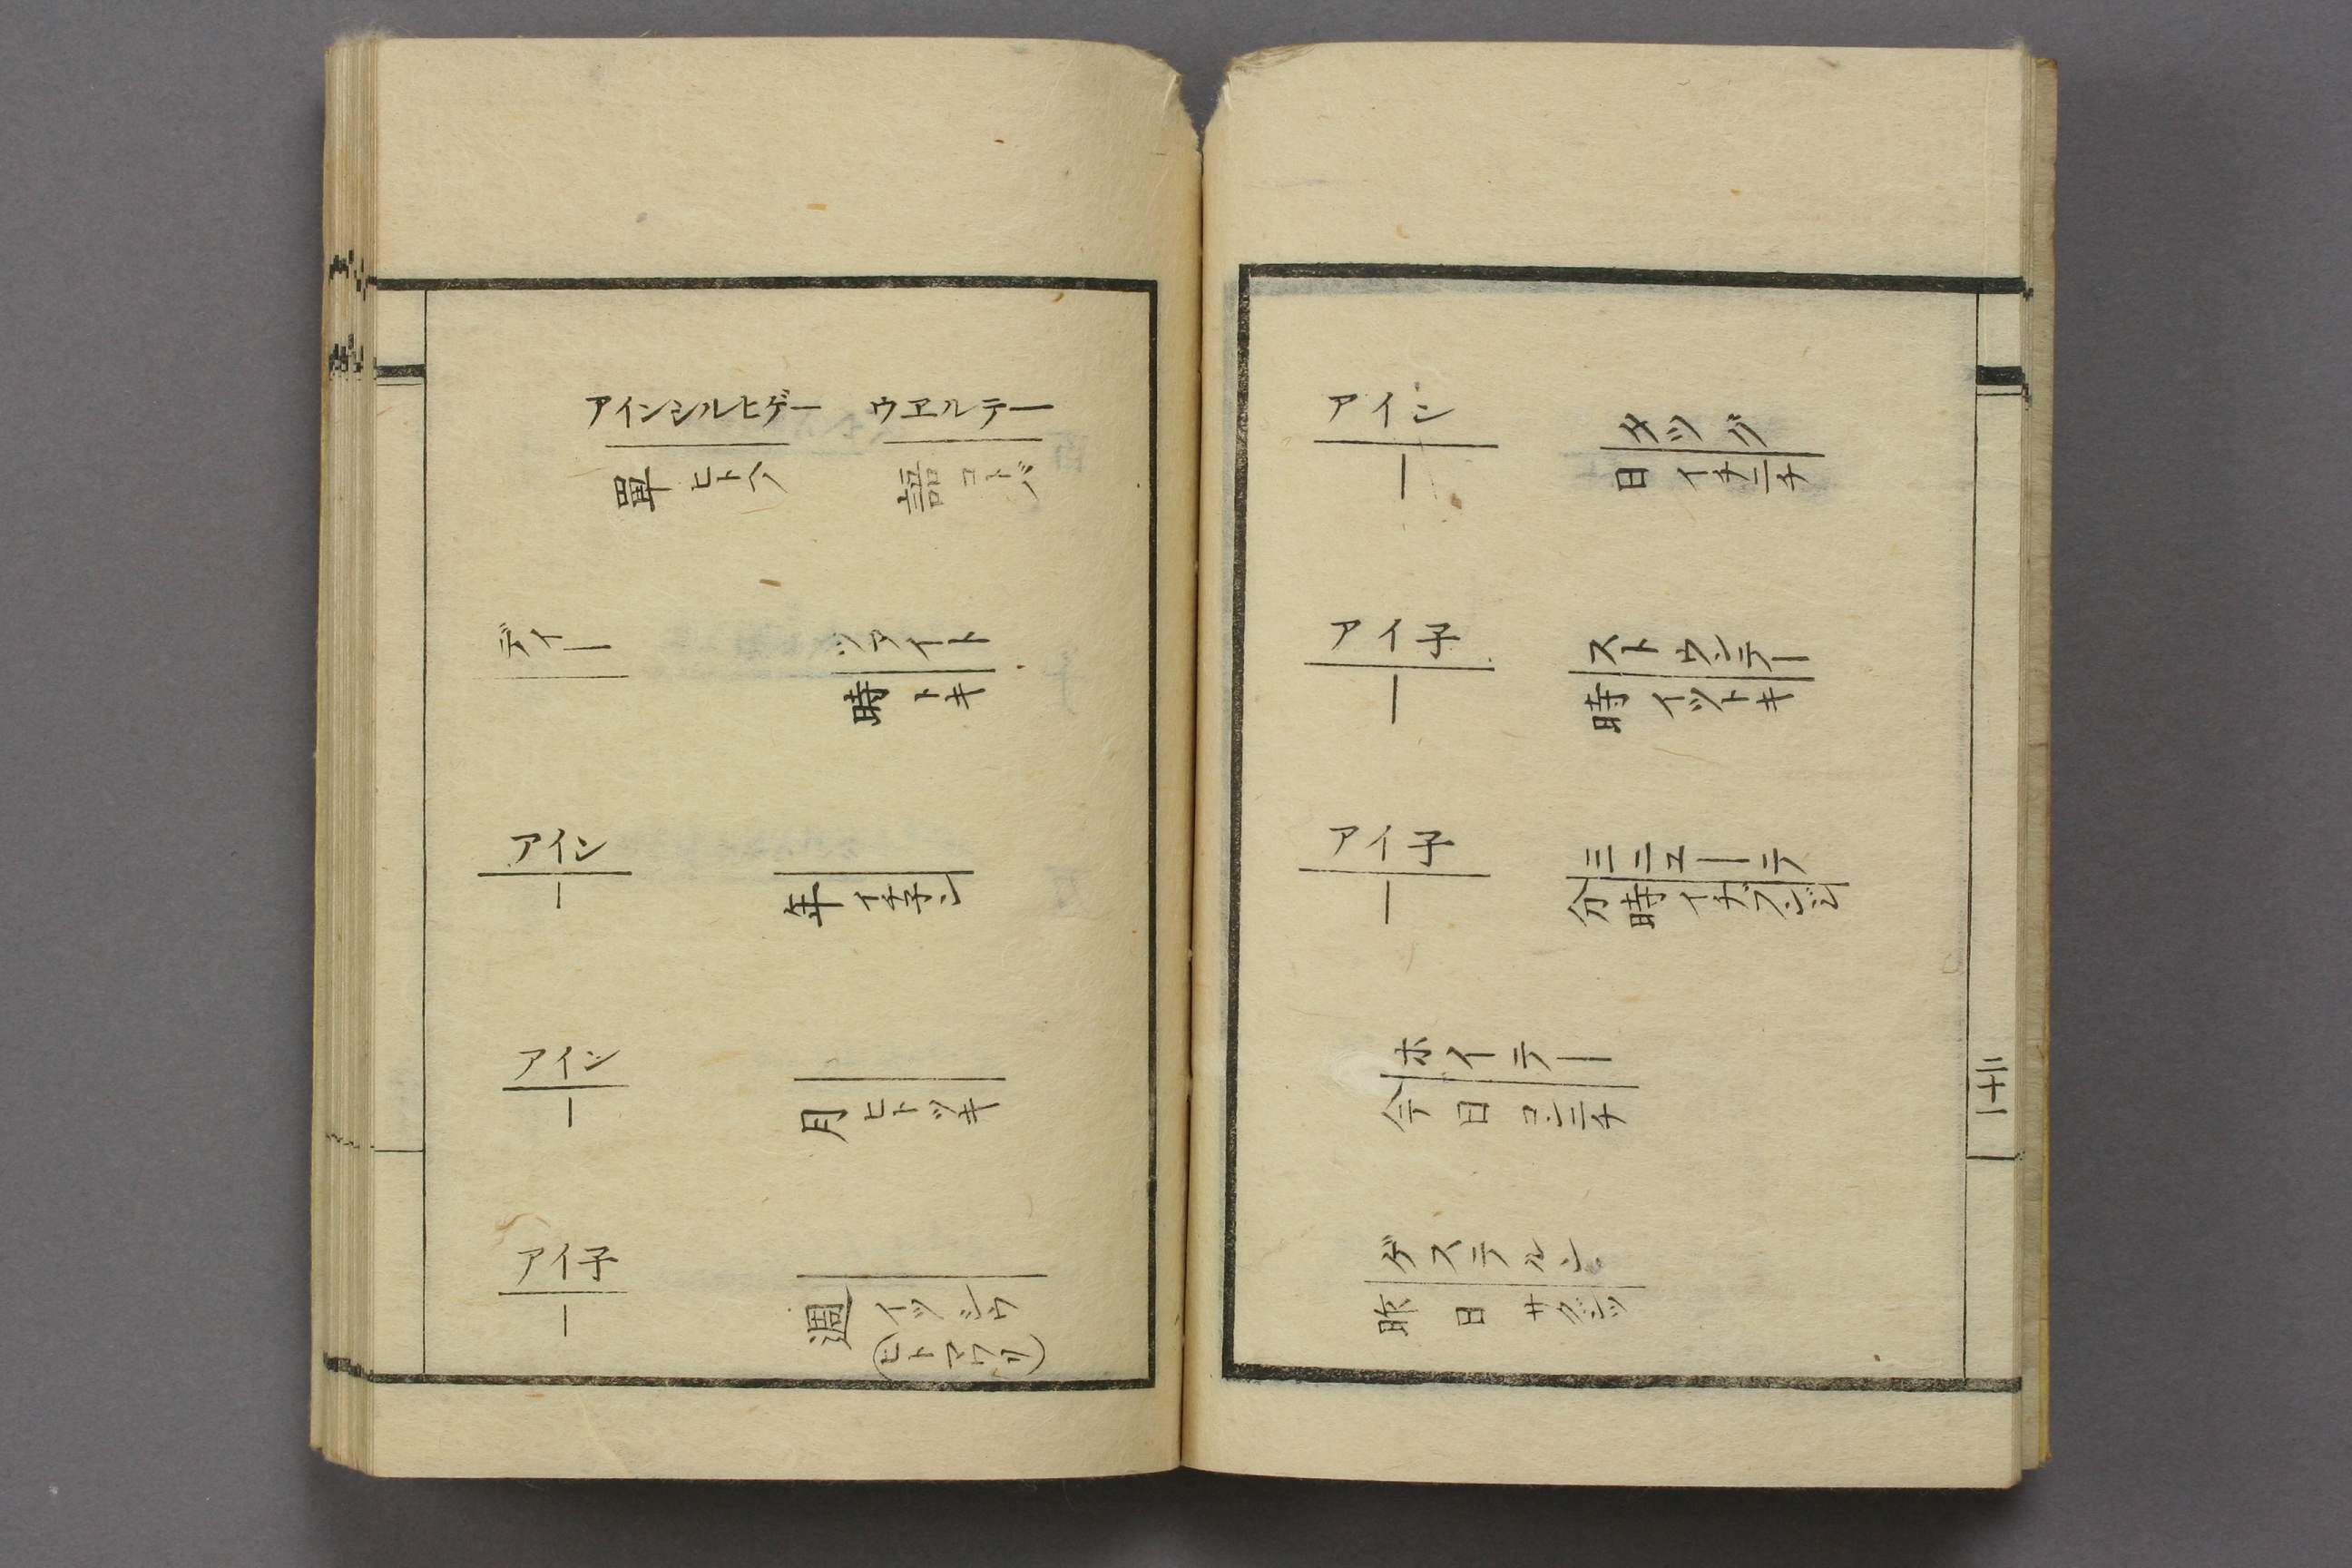 アインシルヒゲー ウエルテー
單 ヒトヘ 語 コトバ
ディー ツアイト
時 トキ
アイン
一 年 イチ子ン
アイン
一 月 ヒトツキ
アイ子
一 週 イツシウ
(ヒトマワリ)
アイン タツグ
一 日 イチニチ
アイ子 ストウンテー
一 時 イツトキ
アイ子 ミニューテ
一 分時 イチブンジ
ホイテー
今日 コンニチ
ゲステルン
昨日 サクジツ
二十一